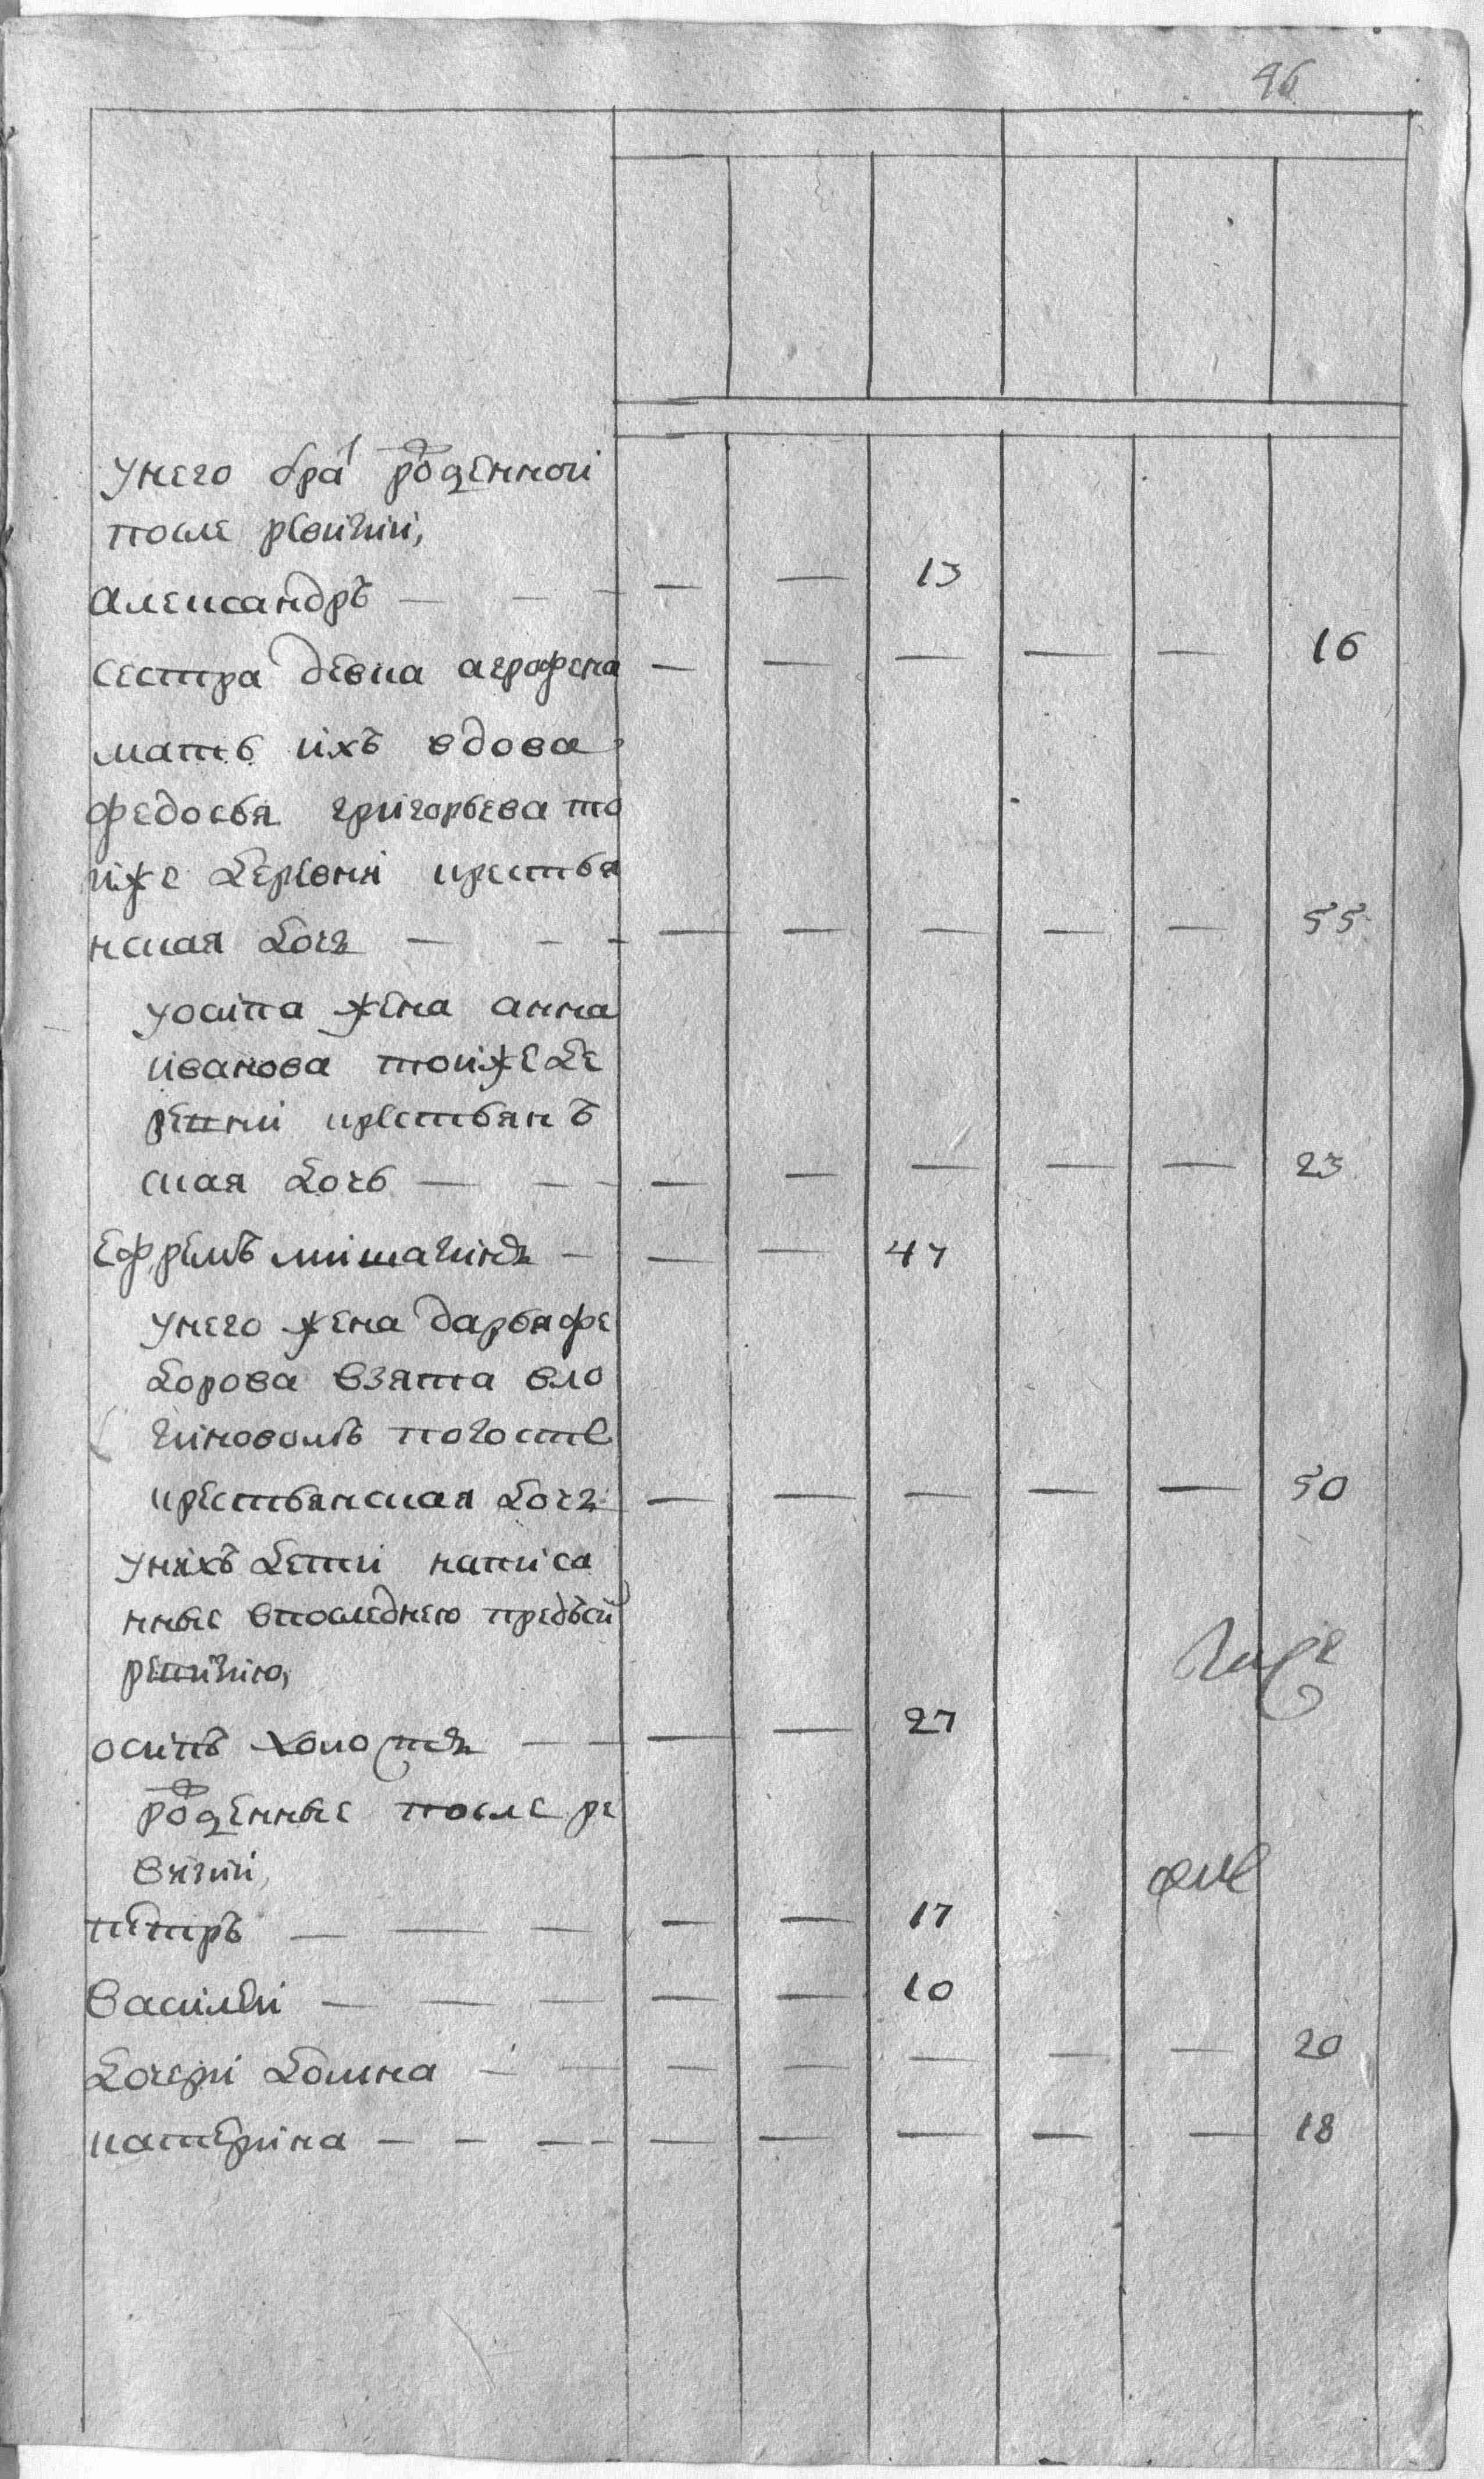 96
унего бра<sup>т</sup> рожденной
после ревизии,
александръ — — — — — 13
сестра девка аграфена — — — — — 16
мать ихъ вдова
федосья григорьева то
иже деревни крестья
нская дочь — — — — — — — — 55
уосипа жена анна
иванова тоиже де
ревни крестьянъ
ская дочь — — — — — — — — 23
ефремъ мишагинъ — — — 47
унего жена дарья фе
дорова взята вло
гиновомъ погосте
крестьянская дочь — — — — — 50
унихъ дети написа
нные впоследнею предъсим
ревизию,
осипъ холостъ — — — — 27
рожденные после ре
визии,
петръ — — — — — 17
василеи — — — — — 10
дочери домна — — — — — — — 20
катерина — — — — — — — — — 18